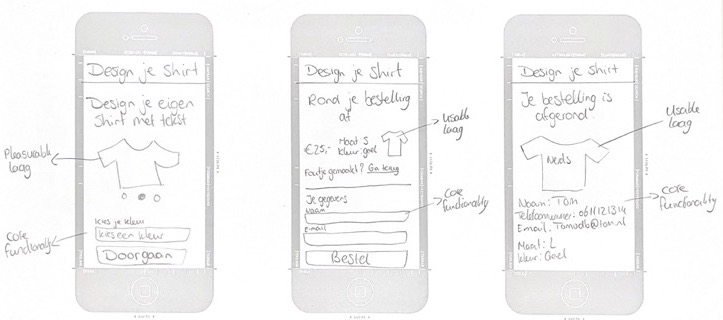 Design je shirt
Design je eigen
Shirt met tekst
Pleasurable
laag
kies je kleur
kies een kleur
Core
functionality
Doorgaan
Design je shirt
Rond je bestelling
af
Usable
laag
€25,-
Maat: S
kleur: geel
Foutje gemaakt? Ga terug
Je gegevens
naam
Core
functionality
E-mail
Bestel
Design je shirt
Je bestelling is
afgerond
Usable
laag
Nerds
Naam: Tom
Telefoonnummer: 0611121314
Core
functionality
Email:
Maat: L
kleur: Geel